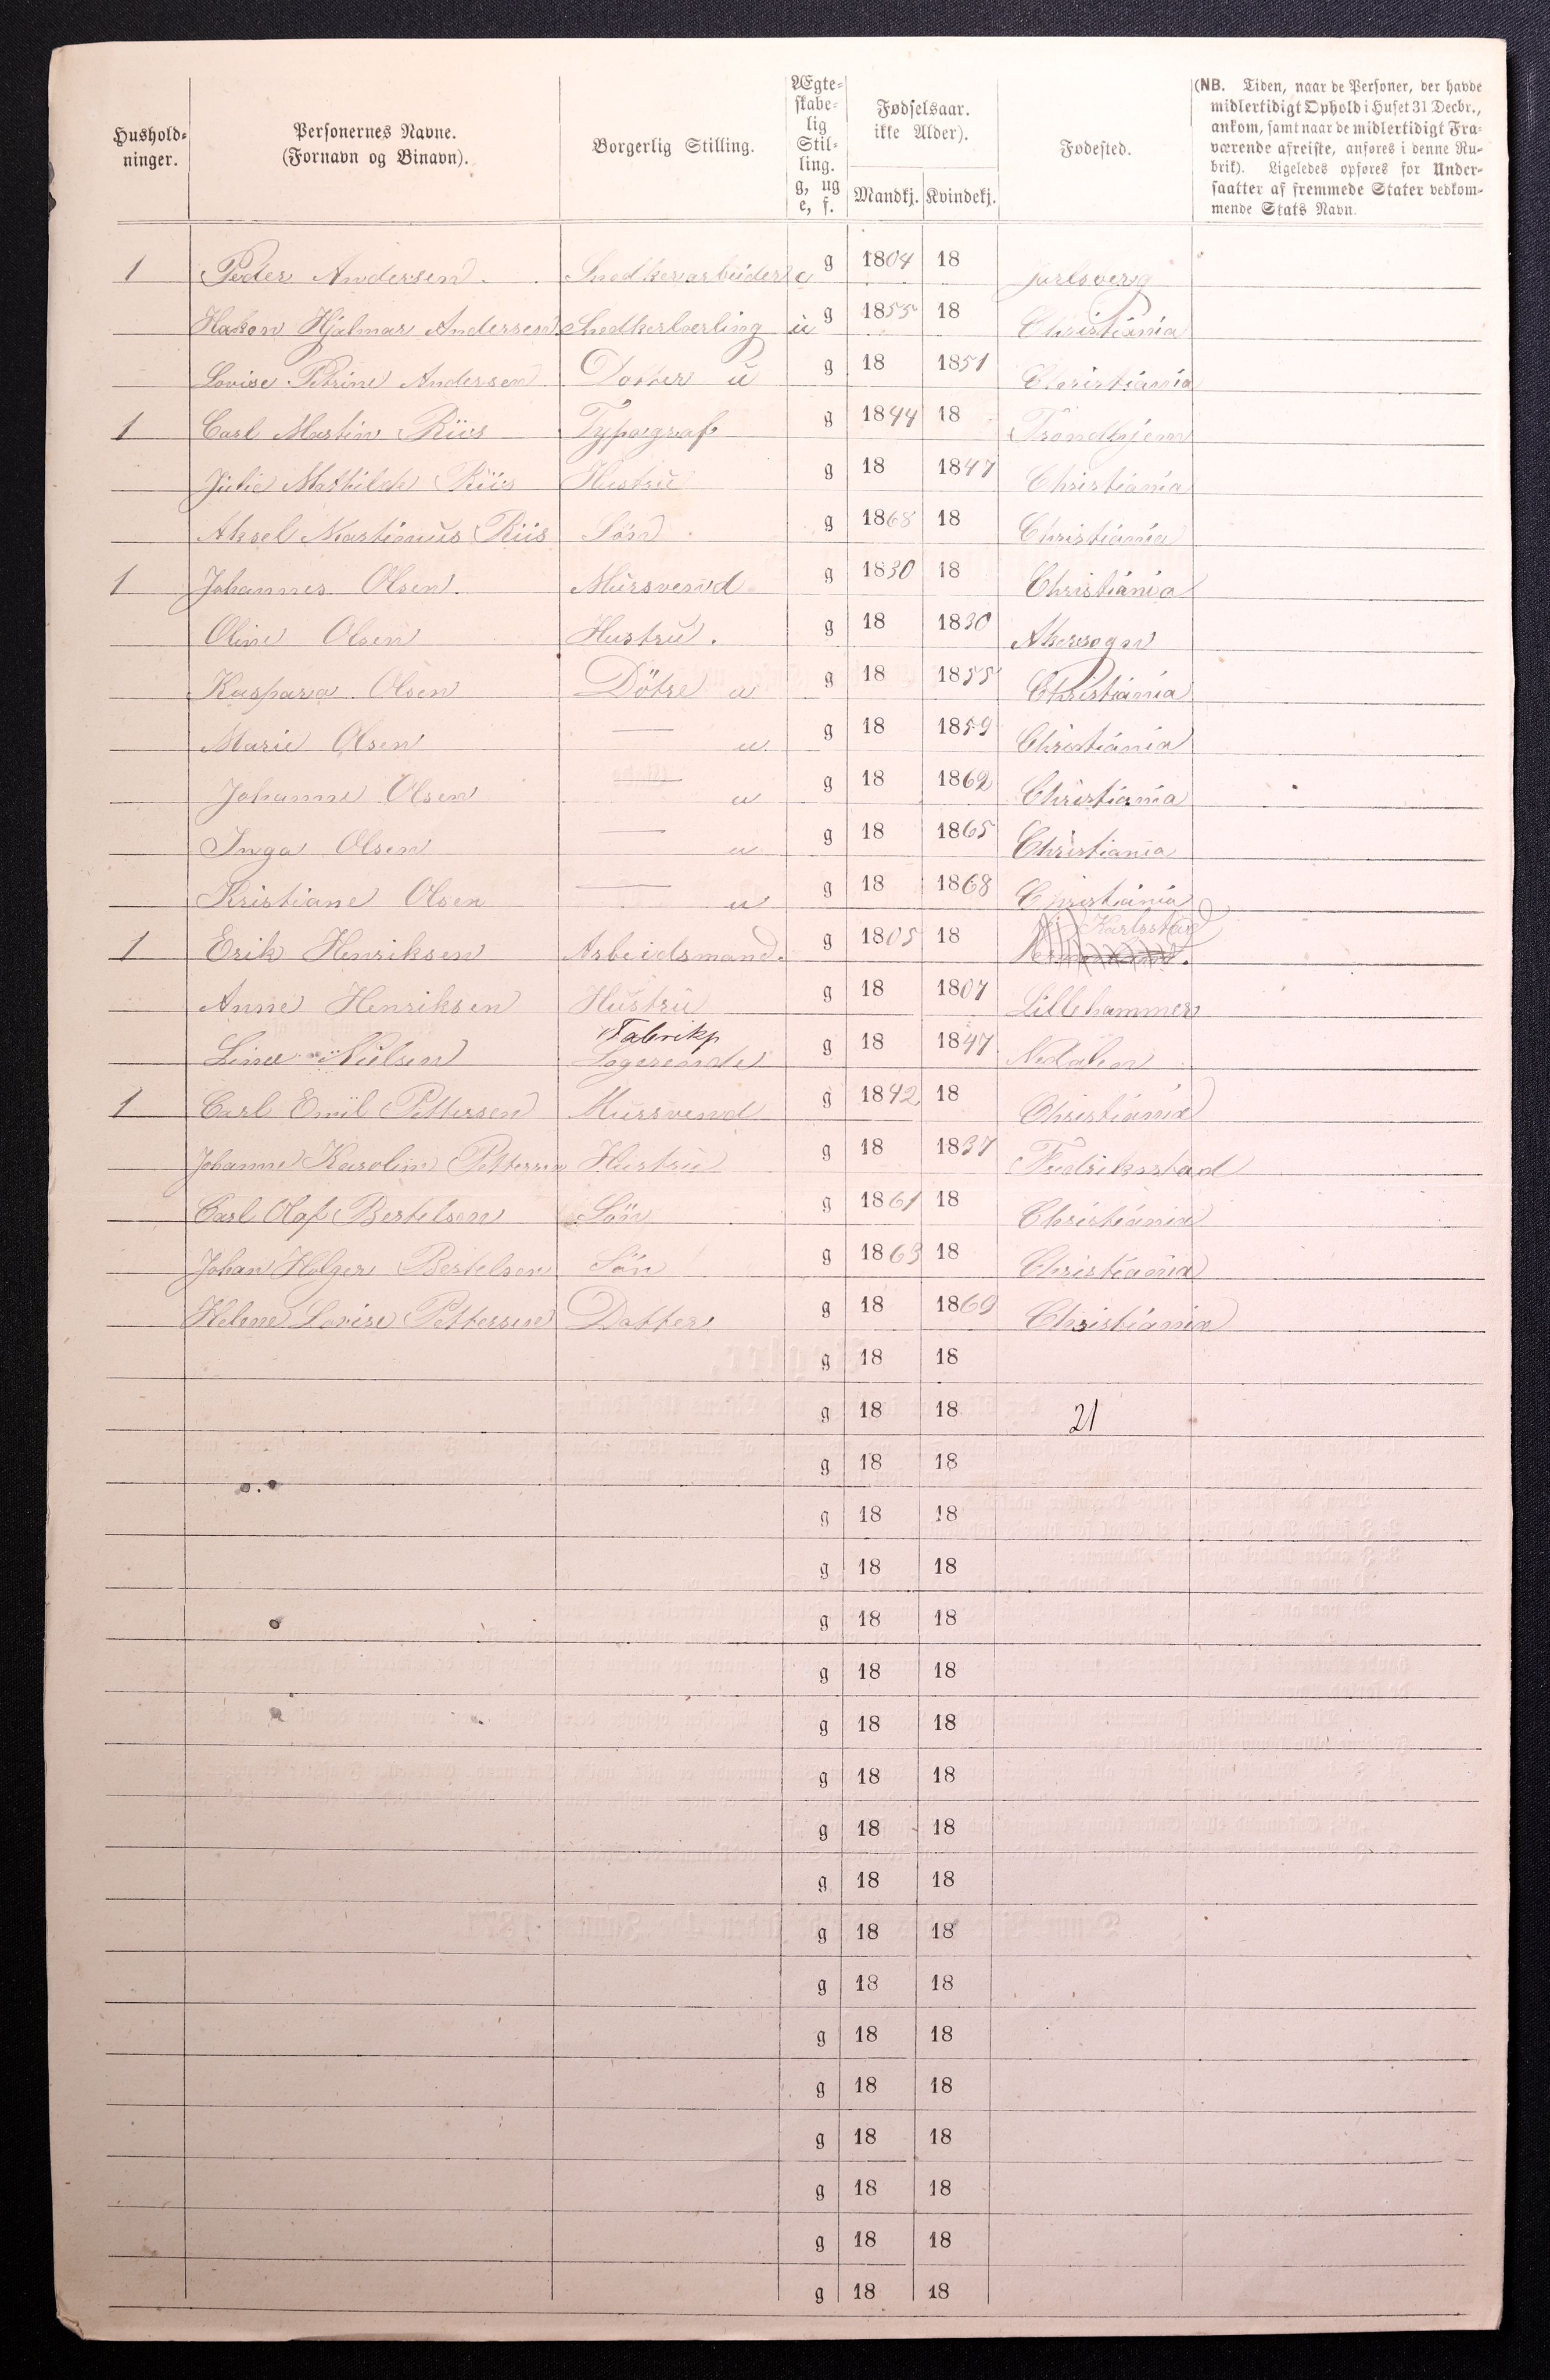 Hushold-
ninger.
Personernes Navne.
(Fornavn og Binavn).
Borgerlig Stilling.
Ægte-
skabe-
lig
Stil-
ling.
g, ug
e, f.
Fødselsaar.
ikke Alder).
Mandkj. Kvindekj.
Fødested.
(NB. Tiden, naar de Personer, der havde
midlertidigt Ophold i Huset 31 Decbr.,
ankom, samt naar de midlertidigt Fra-
værende afreiste, anføres i denne Ru-
brik). Ligeledes opføres for Under-
saatter af fremmede Stater vedkom-
mende Stats Navn.
1 Peder Andersen Snedkerarbeider e g 1804 18 Jarlsberg
Hakon Hjalmar Andersen Snedkerlærling u g 1855 18 Christiania
Lovise Petrine Andersen Datter u g 18 1851 Christiania
1 Carl Martin Riis Typograf g 1844 18 Trondhjem
Julie Mathilde Riis Hustru g 18 1847 Christiania
Aksel Martinius Riis Sön g 1868 18 Christiania
1 Johannes Olsen Mursvend g 1830 18 Christiania
Oline Olsen Hustru. g 18 1830 Akersogn
Kaspara Olsen Dötre u g 18 1855 Christiania
Marie Olsen — u g 18 1859 Christiania
Johanne Olsen — u g 18 1862 Christiania
Inga Olsen — u g 18 1865 Christiania
Kristiane Olsen — u g 18 1868 Christiania
1 Erik Henriksen Arbeidsmand. g 1805 18 Karlsstad
Anne Henriksen Hustru g 18 1807 Lillehammer
Line Nielsen Fabrikp Logerende g 18 1847
1 Carl Emil Pettersen Mursvend g 1842 18 Christiania
Johanne Karolin Pettersen Hustru g 18 1837 Fredriksstad
Carl Olaf Bertelsen Sön g 1861 18 Christiania
Johan Holger Bertelsen Sön g 1863 18 Christiania
Helene Lovise Pettersen Datter g 18 1869 Christiania
g 18 18
g 18 18 21
g 18 18
g 18 18
g 18 18
g 18 18
g 18 18
g 18 18
g 18 18
g 18 18
g 18 18
g 18 18
g 18 18
g 18 18
g 18 18
g 18 18
g 18 18
g 18 18
g 18 18